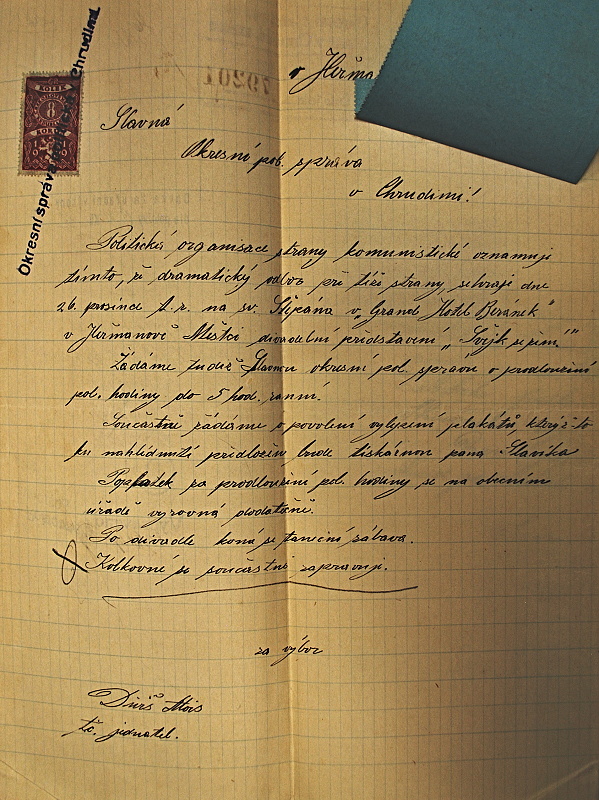 Okresní správa politická v Chrudimi.
KOLEK
8
v Heřma
Slavná
Okresní pol. správa
v Chrudimi!
Politická organisace strany komunistické oznamuje
tímto, že dramatický odbor při téže straně sehraje dne
26. prosince t. r. na sv. Štěpána v „Grand Hotel Beránek"
v Heřmanově Městci divadelní představení „Švejk se žení"
Žádáme tudíž Slavnou okresní pol. správu o prodloužení
pol. hodiny do 5 hod. ranní.
Současně žádáme o povolení vylepení plakátů, který-to
ku nahlédnutí předložen bude tiskárnou pana Slavíka
Poplatek za prodloužení pol. hodiny se na obecním
úřadě vyrovná dodatečně.
Po divadle koná se taneční zábava.
Kolkovné se současně zapravuje.
za výbor
Alois
t.č. jednatel.